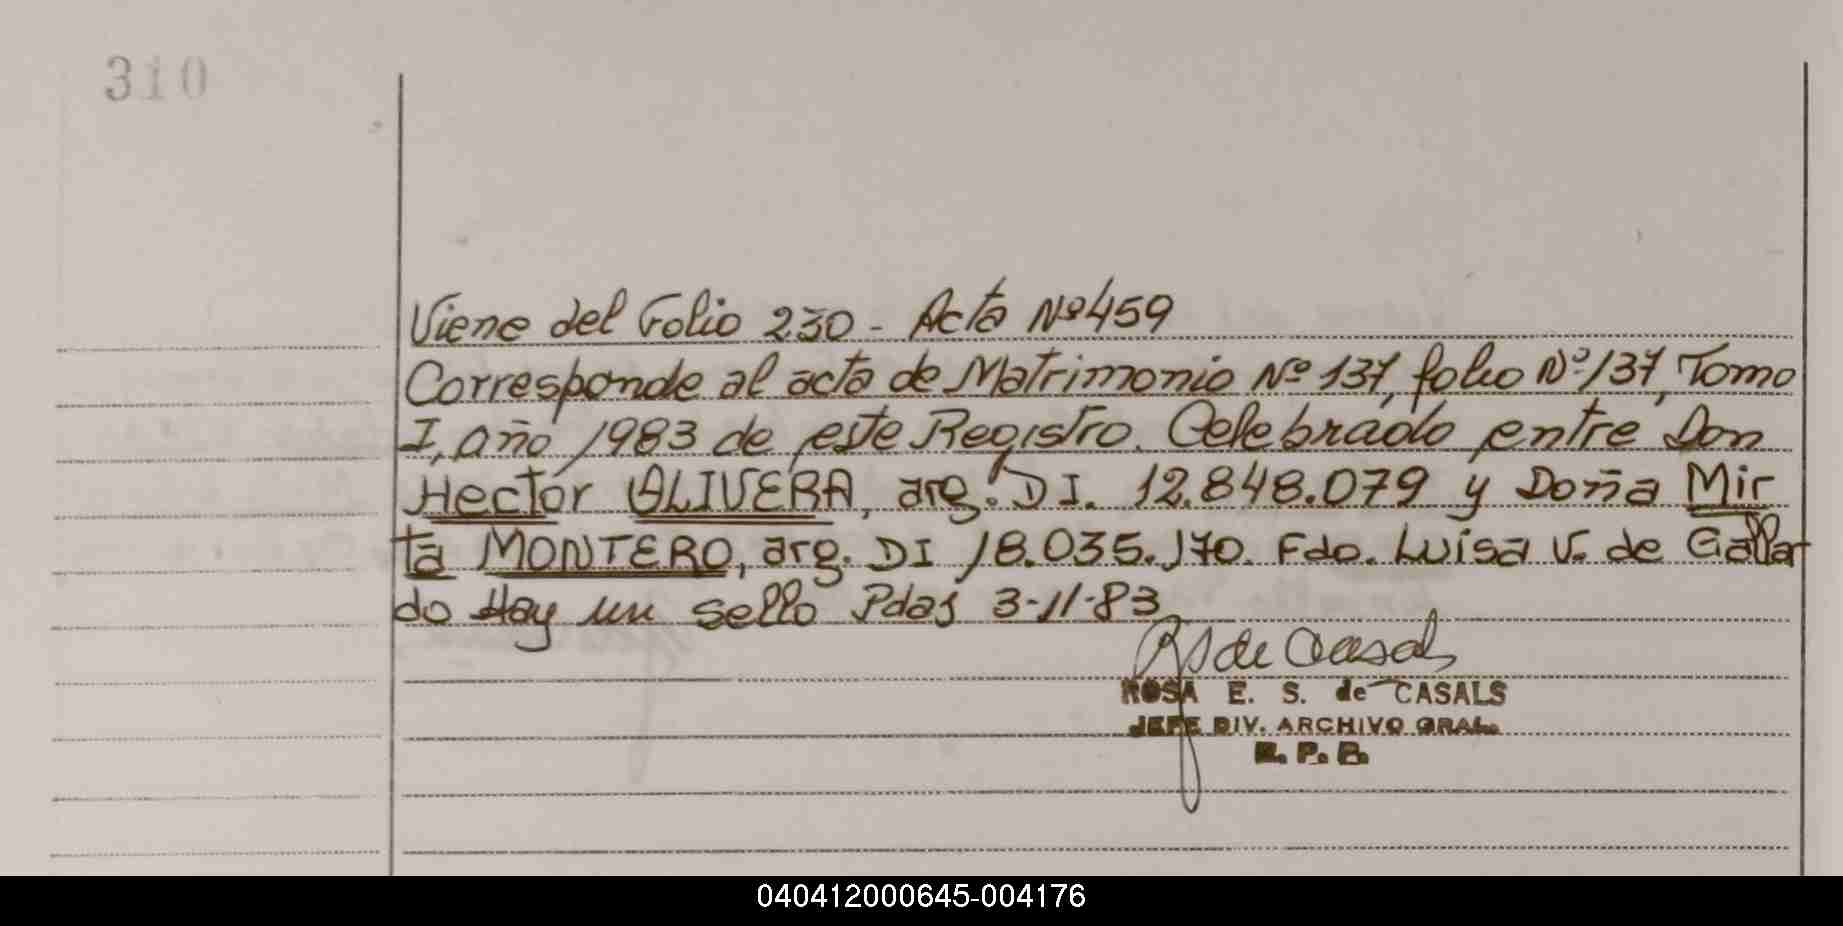 310
Viene del Folio 230 - Acta Nº 459
Corresponde al acta de Matrimonio Nº 137, folio Nº 137, Tomo
I, año 1983 de este Registro. Celebrado entre Don
Hector OLIVERA, arg. DI. 12.848.079 y Doña Mir
ta MONTERO, arg. DI 18.035.170. Fdo. Luisa V. de Galla
do Hay un sello Pdas 3-11-83
de Casals
ROSA E. S. de CASALS
JEFE DIV. ARCHIVO GRAL.
R. P. P.
040412000645-004176